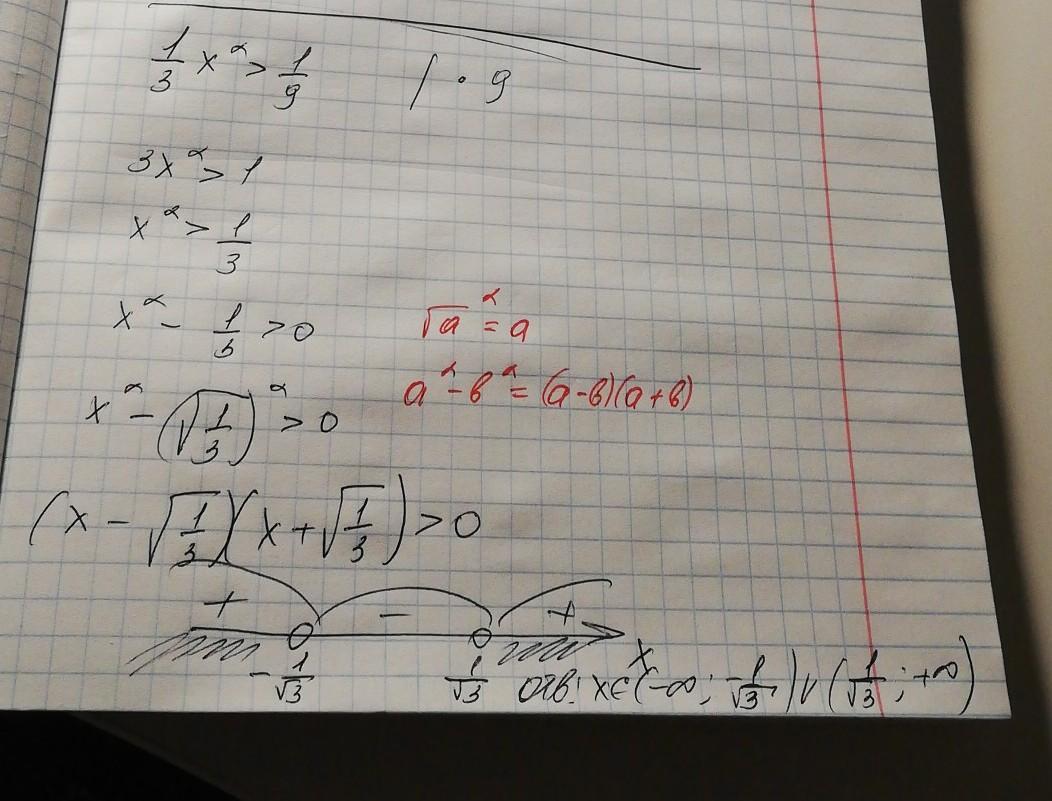 1/3 x² > 1/9 | · 9
3x² > 1
x² > 1/3
x² - 1/3 > 0
√a² = a
a² - в² = (a-в)(a+в)
x² - (√1/3)² > 0
(x - √1/3)(x + √1/3) > 0
+ - +
-1/√3 1/√3 x
отв: x∈(-∞; -1/√3) ∪ (1/√3; +∞)